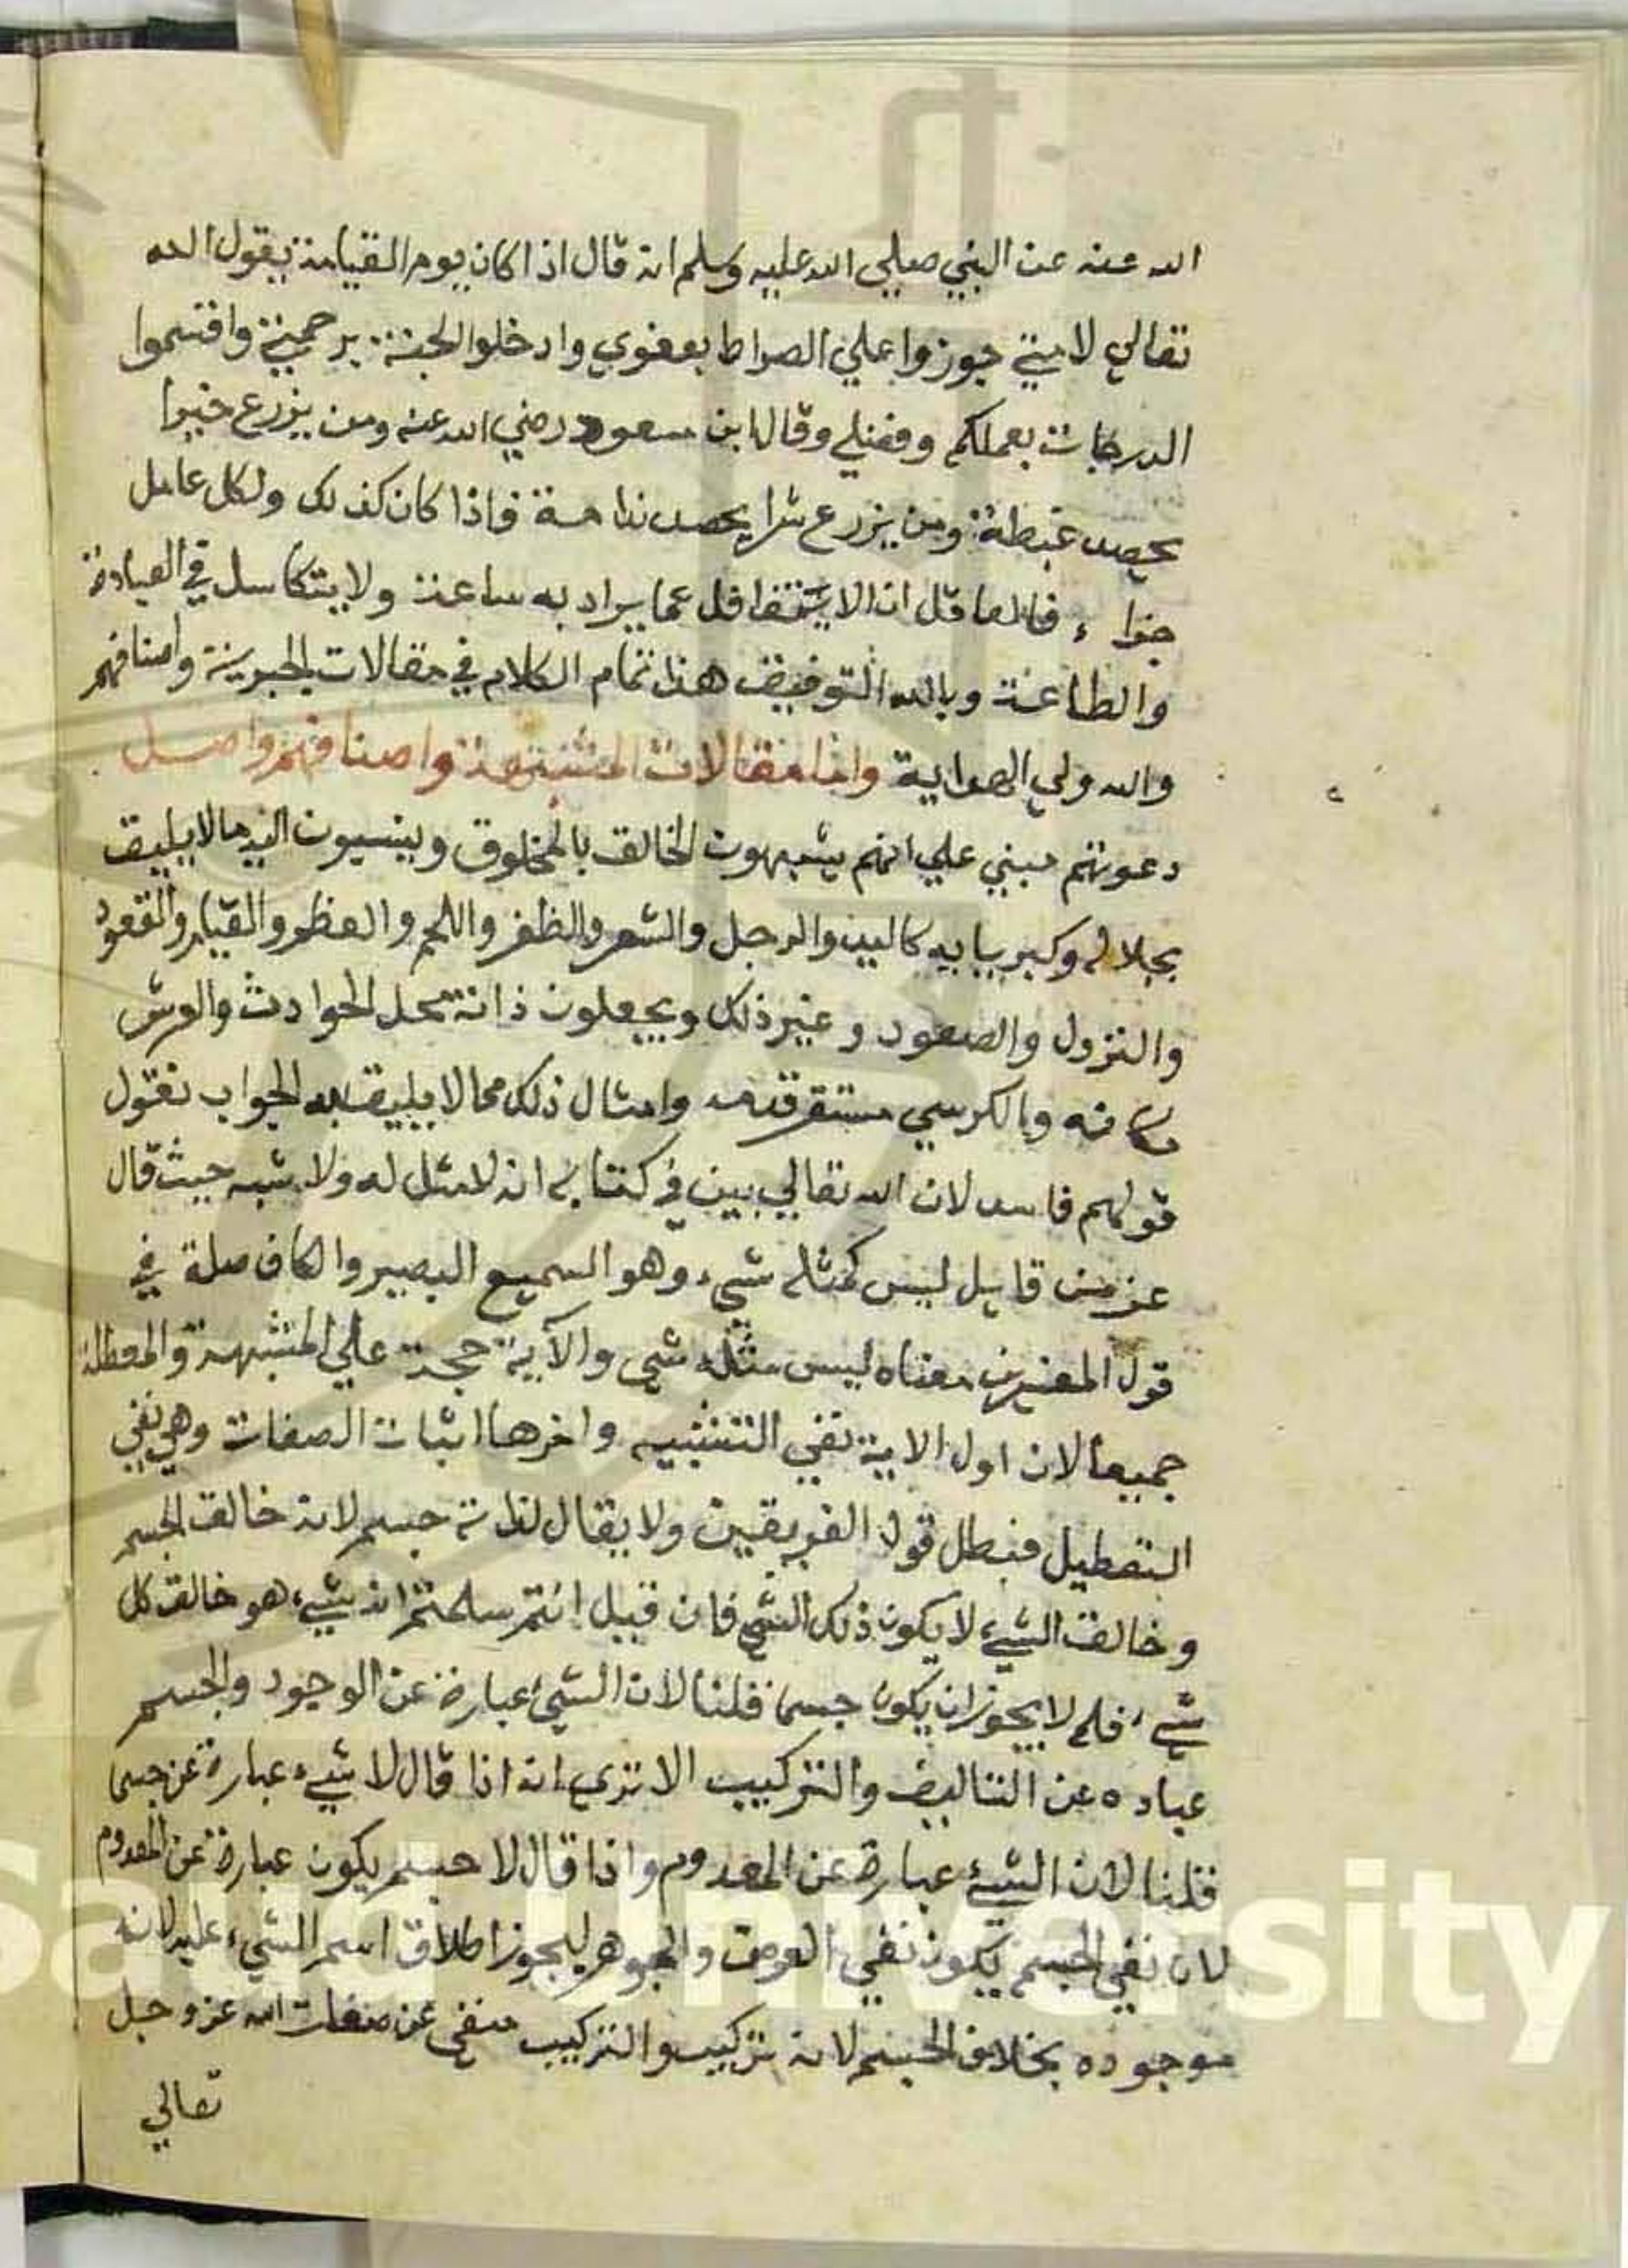 الله عنه عن النبي صلي الله عليه وسلم انه قال اذا كان يوم القيامة يقول الله
تعالي لامتي جوزوا علي الصراط بعفوي وادخلوا الجنة برحمتي واقتسموا
الدرجات بعملكم وفضلي وقال ابن مسعود رضي الله عنه ومن يزرع خيرا
يحصد غبطة ومن يزرع شرا يحصد ندامة فاذا كان كذلك ولكل عامل
جزاء فالعاقل ان لا يتغافل عما يراد به ساعة ولا يتكاسل في العبادة
والطاعة وبالله التوفيق هذا تمام الكلام في مقالات الجبرية واصنافهم
والله ولي الهداية واما مقالات المشبهة واصنافهم واصل
دعوتهم مبني علي انهم يشبهون الخالق بالمخلوق وينسبون اليه ما لا يليق
بجلاله وكبريايه كاليد والرجل والشعر والظفر واللحم والعظم والقيام والقعود
والنزول والصعود وغير ذلك ويجعلون ذاته محل الحوادث والعرش
مكانه والكرسي مستقر قدمه وامثال ذلك مما لا يليق به الجواب نقول
قولهم فاسد لان الله تعالي بين في كتابه انه لا مثل له ولا شبه حيث قال
عز من قايل ليس كمثله شيء وهو السميع البصير والكاف صلة في
قول المفسرين معناه ليس مثله شي والآية حجة علي المشبهة والمعطلة
جميعا لان اول الاية نفي التشبيه واخرها اثبات الصفات وهي نفي
التعطيل فبطل قول الفريقين ولا يقال لذاته جسم لانه خالق الجسم
وخالق الشيء لا يكون ذلك الشي فان قيل انتم سلمتم انه شيء هو خالق كل
شيء فلم لا يجوز ان يكون جسما قلنا لان الشيء عبارة عن الوجود والجسم
عباده عن التاليف والتركيب الا تري انه اذا قال لا شيء عبارة عن جسم
قلنا لان الشئ عبارة عن المعدوم واذا قال لا جسم يكون عبارة عن المعدوم
لان نفي الجسم يكون نفي العرض والجوهر ليجوز اطلاق اسم الشيء عليه لانه
موجوده بخلاف الجسم لانه تركيب والتركيب منفي عن صفات الله عز وجل
تعالي
Saud University